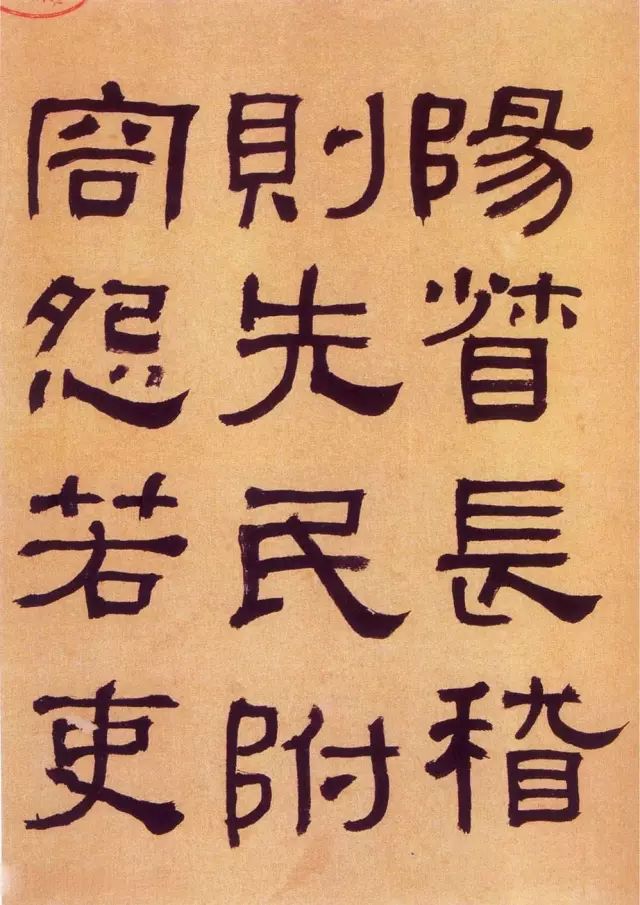 陽督長稽
則先民附
容怨若吏